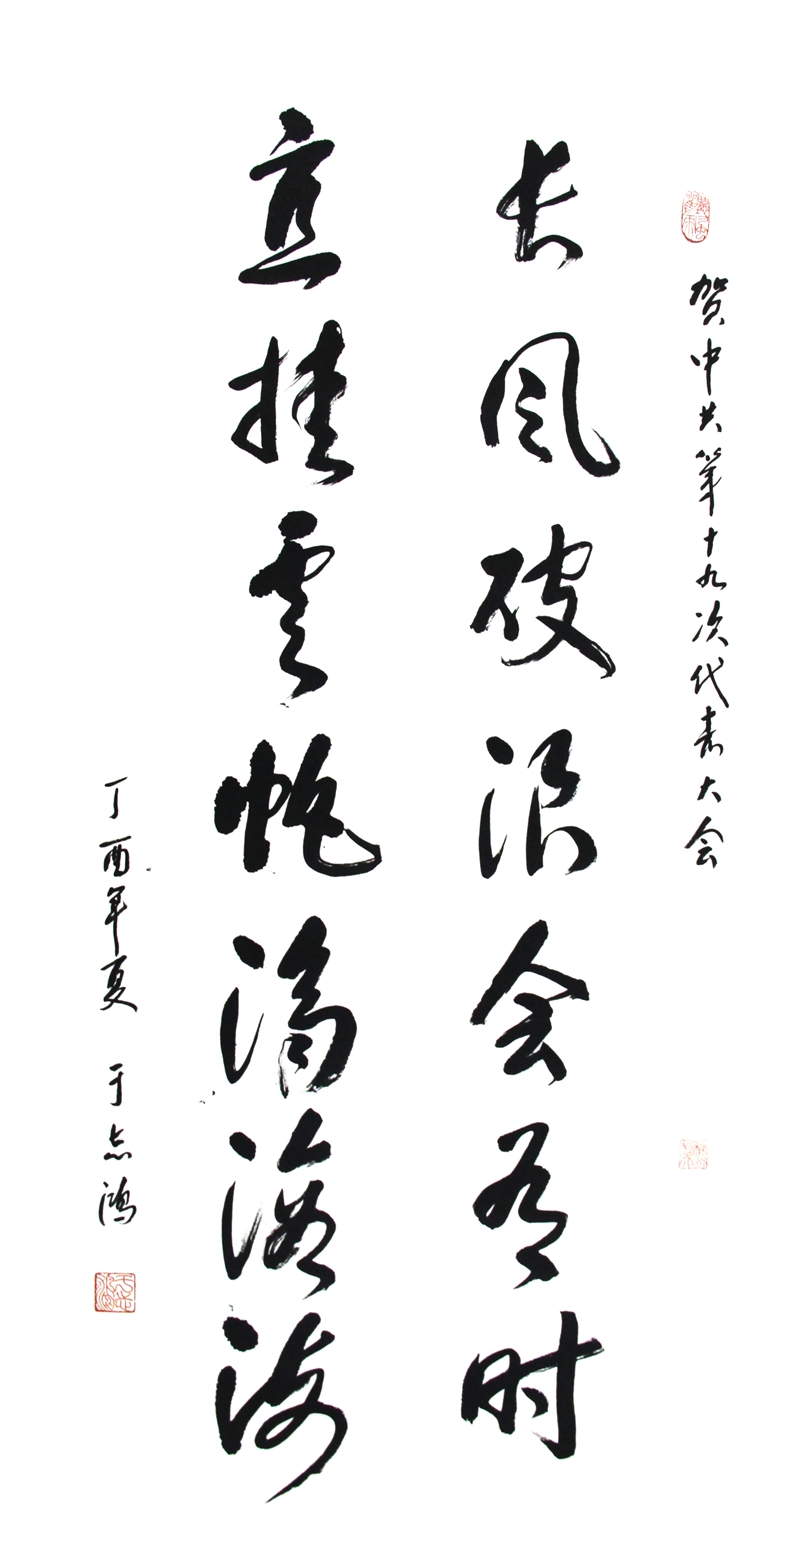 贺中共第十九次代表大会
长风破浪会有时
直挂云帆济沧海
丁酉年夏 于志鸿